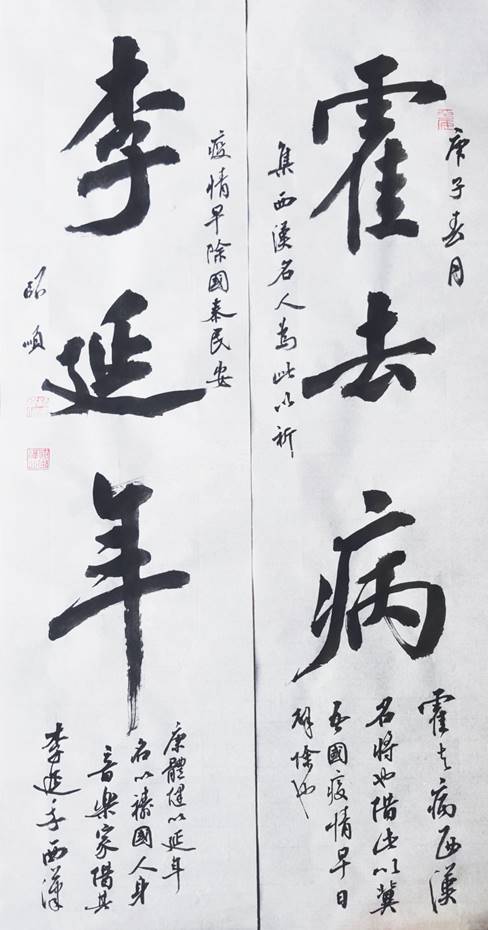 庚子春月
霍去病
集西漢名人為此以祈
霍去病西漢
名將也借此以冀
吾國疫情早日
解除也
疫情早除國泰民安
李延年
李延年西漢
音樂家借其
名以禱國人身
康體健以延年
順